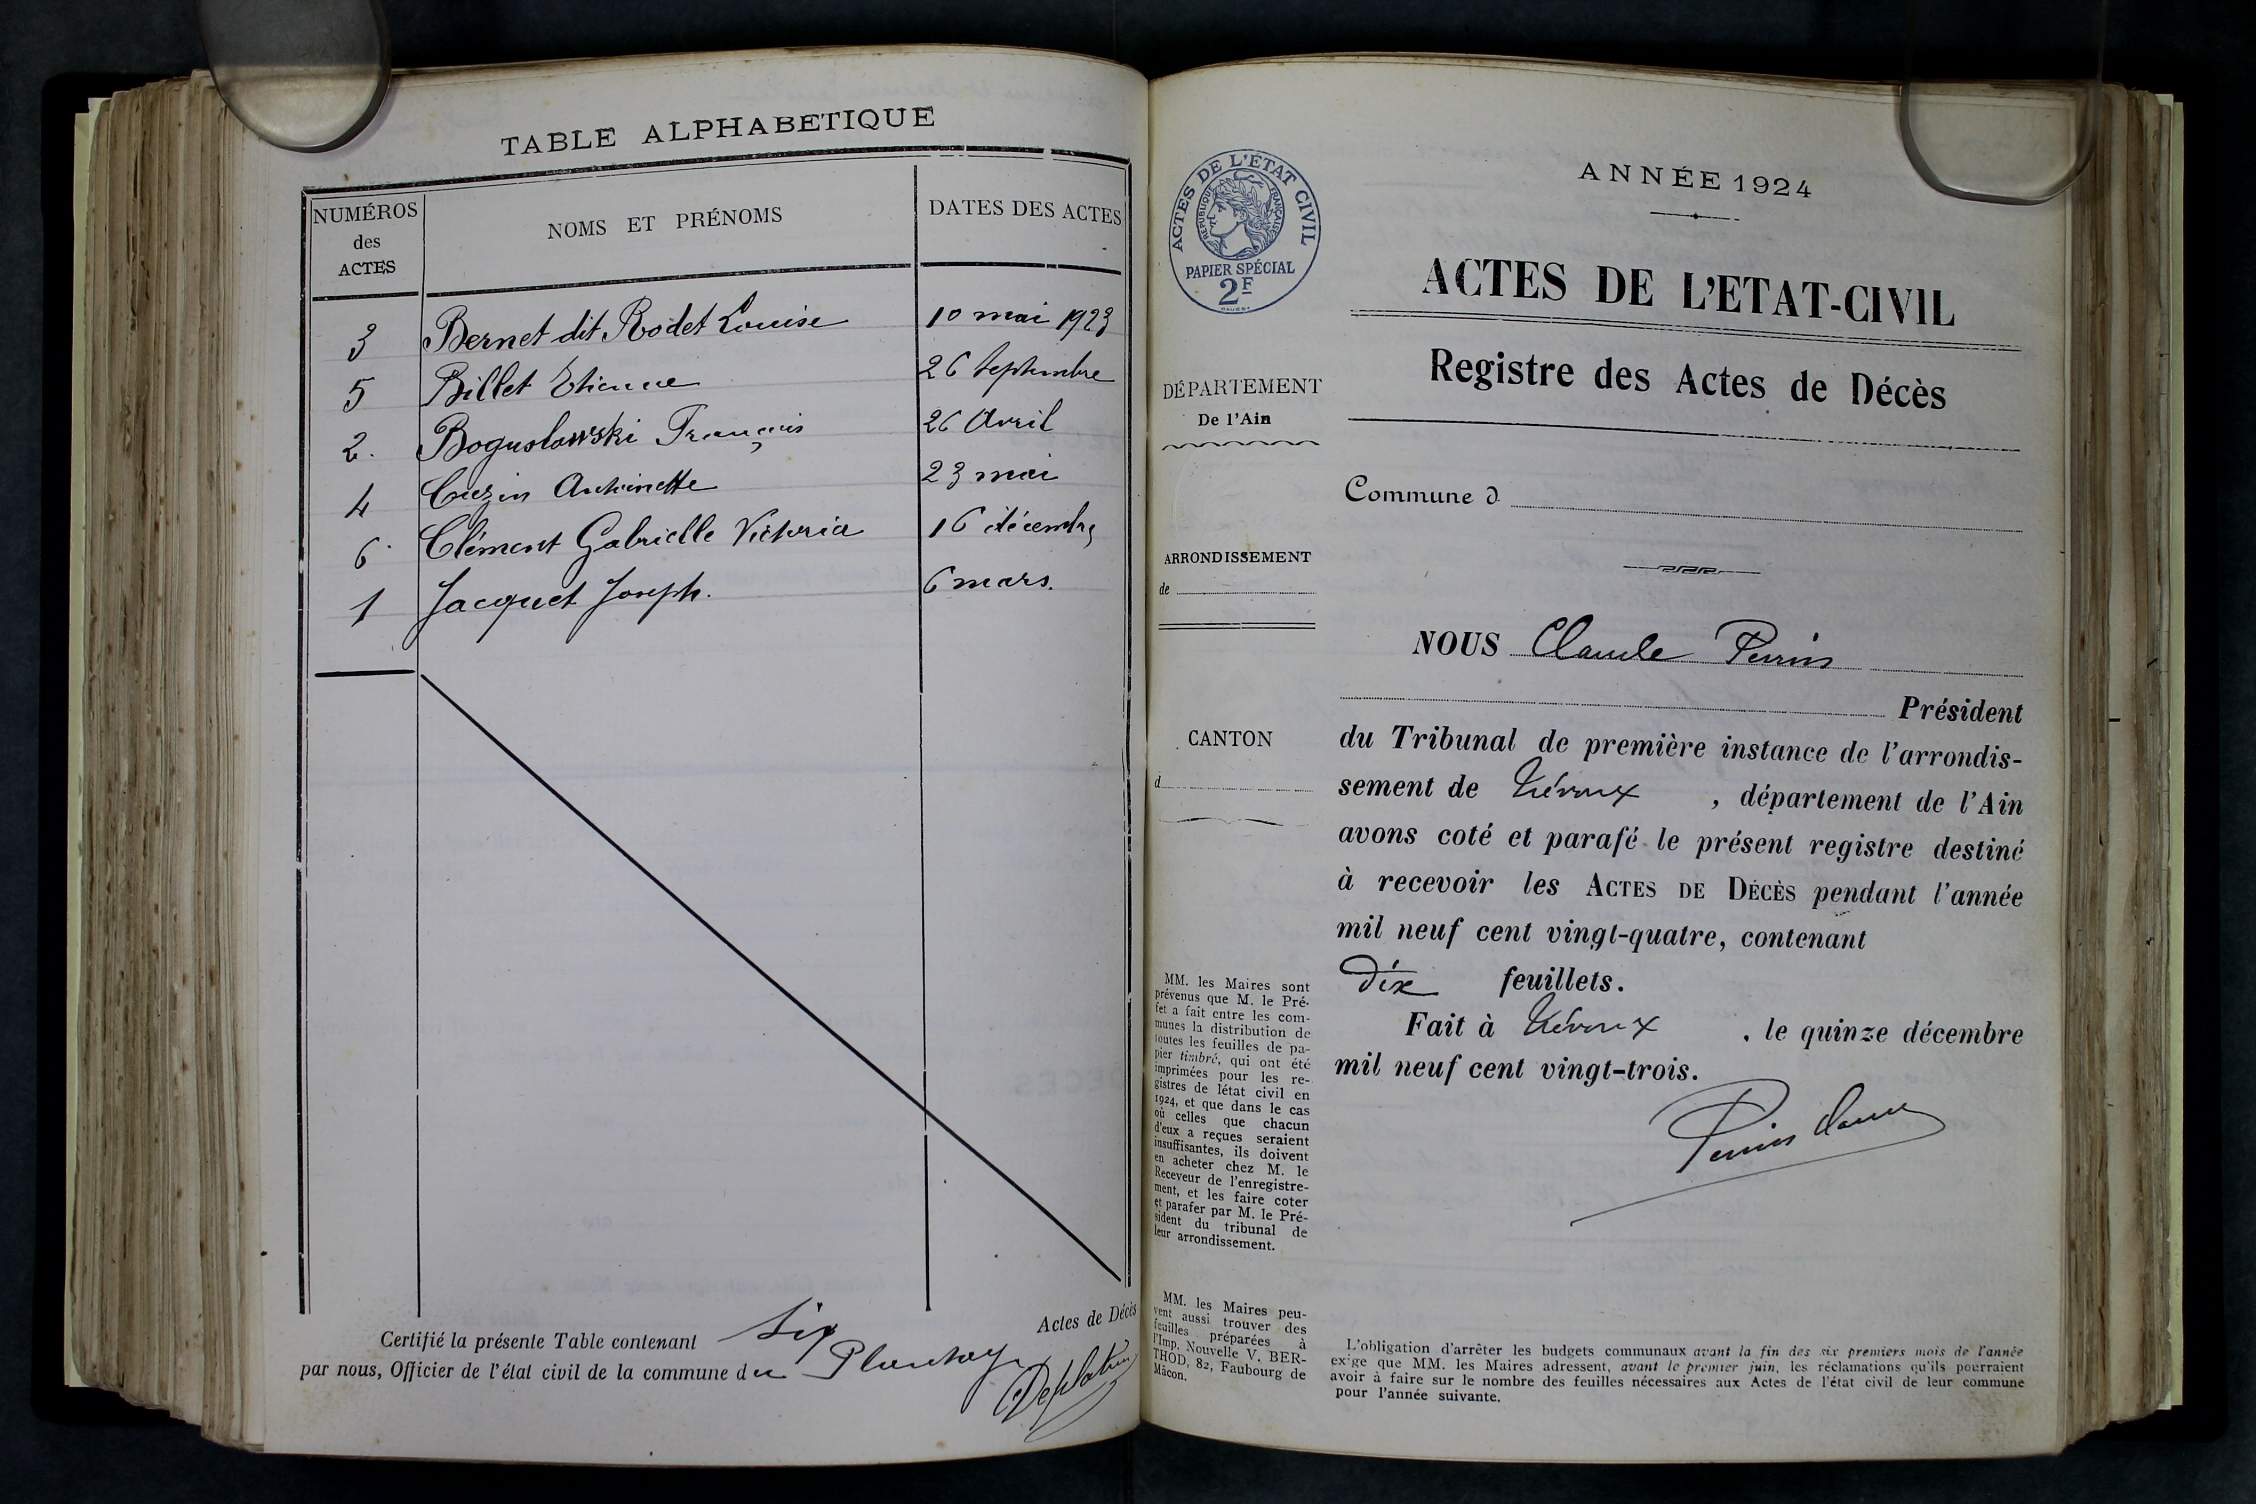 TABLE ALPHABETIQUE
NUMÉROS
des
ACTES
NOMS ET PRÉNOMS
DATES DES ACTES
3 Bernet dit Rodet Louise 10 mai 1923
5 Billet Etienne 26 Septembre
2. Boguslawski François 26 Avril
4 Cuzin Antoinette 23 mai
6 Clément Gabrielle Victoria 16 décembre
1 Jacquet Joseph. 6 mars.
Certifié la présente Table contenant Six Actes de Décès
par nous, Officier de l'état civil de la commune du Plantay
ACTES DE L'ÉTAT CIVIL
RÉPUBLIQUE FRANÇAISE
PAPIER SPÉCIAL
2F
DÉPARTEMENT
De l'Ain
ARRONDISSEMENT
de
CANTON
d
MM. les Maires sont
prévenus que M. le Pré-
fet a fait entre les com-
munes la distribution de
toutes les feuilles de pa-
pier timbré, qui ont été
imprimées pour les re-
gistres de létat civil en
1924, et que dans le cas
où celles que chacun
d'eux a reçues seraient
insuffisantes, ils doivent
en acheter chez M. le
Receveur de l'enregistre-
ment, et les faire coter
et parafer par M. le Pré-
sident du tribunal de
leur arrondissement.
MM. les Maires peu-
vent aussi trouver des
feuilles préparées à
l'Imp. Nouvelle V. BER-
THOD, 82, Faubourg de
Mâcon.
ANNÉE 1924
ACTES DE L'ETAT-CIVIL
Registre des Actes de Décès
Commune d
NOUS Claude Perrin
Président
du Tribunal de première instance de l'arrondis-
sement de Trévoux , département de l'Ain
avons coté et parafé le présent registre destiné
à recevoir les ACTES DE DÉCÈS pendant l'année
mil neuf cent vingt-quatre, contenant
Dix feuillets.
Fait à Trévoux , le quinze décembre
mil neuf cent vingt-trois.
Perrin Claude
L'obligation d'arrêter les budgets communaux avant la fin des six premiers mois de l'année
exige que MM. les Maires adressent, avant le premier juin, les réclamations qu'ils pourraient
avoir à faire sur le nombre des feuilles nécessaires aux Actes de l'état civil de leur commune
pour l'année suivante.